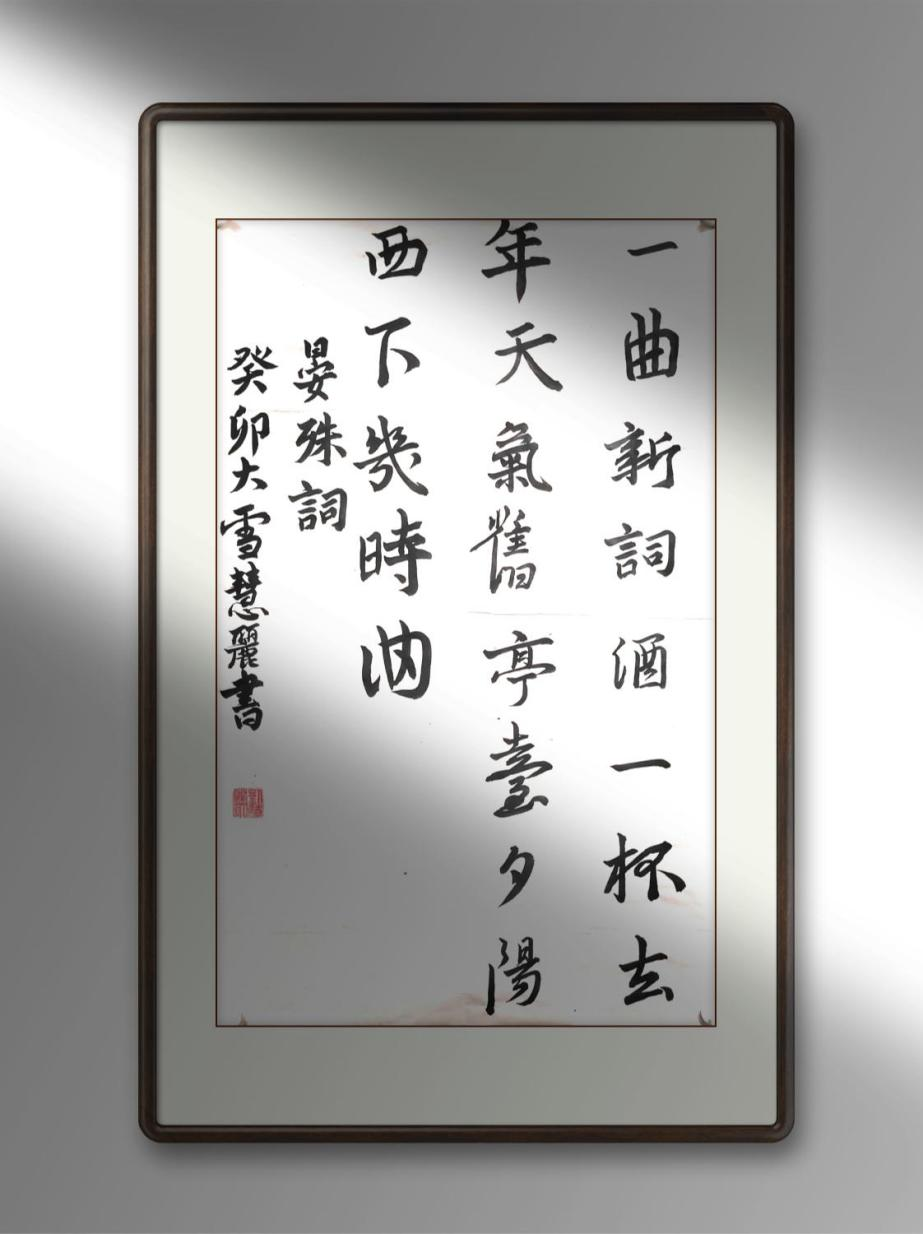 一曲新詞酒一杯去
年天氣舊亭臺夕陽
西下幾時洄
晏殊詞
癸卯大雪慧麗書